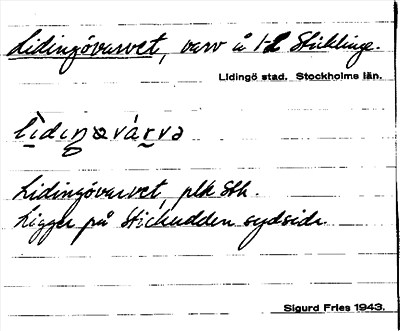 Lidingövarvet, varv å 1-2 Sticklinge.
Lidingö stad. Stockholms län.
lìdiŋəvárvə
Lidingövarvet, plk Sth.
Ligger på Stickuddens sydsida
Sigurd Fries 1943.